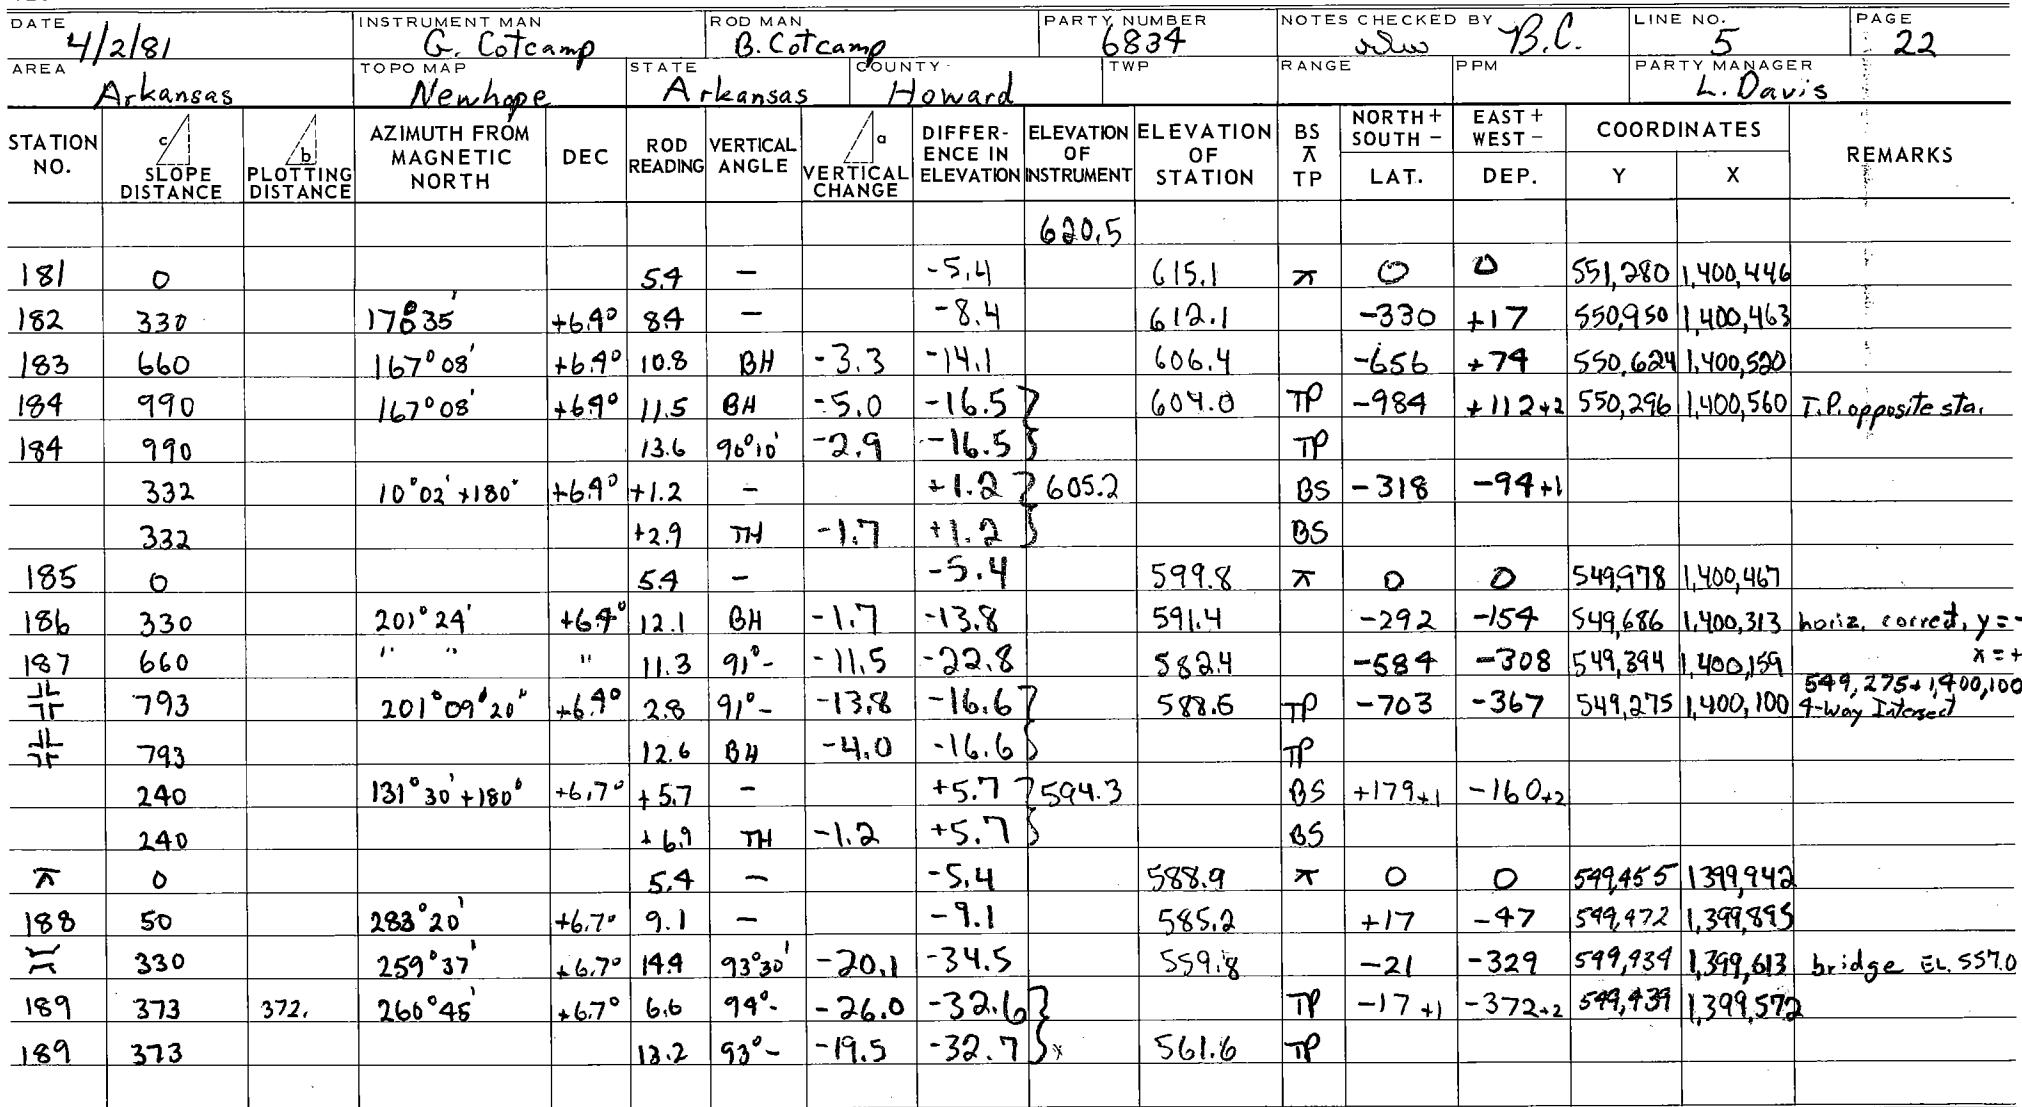 DATE INSTRUMENT MAN ROD MAN PARTY NUMBER NOTES CHECKED BY LINE NO. PAGE
4/2/81 G. Cotcamp B. Cotcamp 6834 B.C. 5 22
AREA TOPO MAP STATE COUNTY TWP RANGE PPM PARTY MANAGER
Arkansas Newhope Arkansas Howard L. Davis
STATION NO. c SLOPE DISTANCE b PLOTTING DISTANCE AZIMUTH FROM MAGNETIC NORTH DEC ROD READING VERTICAL ANGLE a VERTICAL CHANGE DIFFER-ENCE IN ELEVATION ELEVATION OF INSTRUMENT ELEVATION OF STATION BS ⊼ TP NORTH + SOUTH - LAT. EAST + WEST - DEP. COORDINATES Y X REMARKS
620.5
181 0 5.4 - -5.4 615.1 ⊼ 0 0 551,280 1,400,446
182 330 176°35' +6.4° 8.4 - -8.4 612.1 -330 +17 550,950 1,400,463
183 660 167°08' +6.4° 10.8 BH -3.3 -14.1 606.4 -656 +74 550,624 1,400,520
184 990 167°08' +6.4° 11.5 BH -5.0 -16.5 604.0 TP -984 +112+2 550,296 1,400,560 T.P. opposite sta.
184 990 13.6 90°10' -2.9 -16.5 TP
332 10°02' +180° +6.4° +1.2 - +1.2 605.2 BS -318 -94+1
332 +2.9 TH -1.7 +1.2 BS
185 0 5.4 - -5.4 599.8 ⊼ 0 0 549,978 1,400,467
186 330 201°24' +6.4° 12.1 BH -1.7 -13.8 591.4 -292 -154 549,686 1,400,313 horiz. correct, y = -
187 660 " " " 11.3 91°- -11.5 -22.8 582.4 -584 -308 549,394 1,400,159 x = +
793 201°09'20" +6.4° 2.8 91°- -13.8 -16.6 588.6 TP -703 -367 549,275 1,400,100 549,275+1,400,100 4-Way Intersect
793 12.6 BH -4.0 -16.6 TP
240 131°30' +180° +6.7° +5.7 - +5.7 594.3 BS +179+1 -160+2
240 +6.9 TH -1.2 +5.7 BS
⊼ 0 5.4 - -5.4 588.9 ⊼ 0 0 549,455 1399,942
188 50 283°20' +6.7° 9.1 - -9.1 585.2 +17 -47 549,472 1,399,895
330 259°37' +6.7° 14.4 93°30' -20.1 -34.5 559.8 -21 -329 549,434 1,399,613 bridge EL. 557.0
189 373 372. 260°45' +6.7° 6.6 94°- -26.0 -32.6 TP -17+1 -372+2 549,439 1,399,572
189 373 13.2 93°- -19.5 -32.7 x 561.6 TP